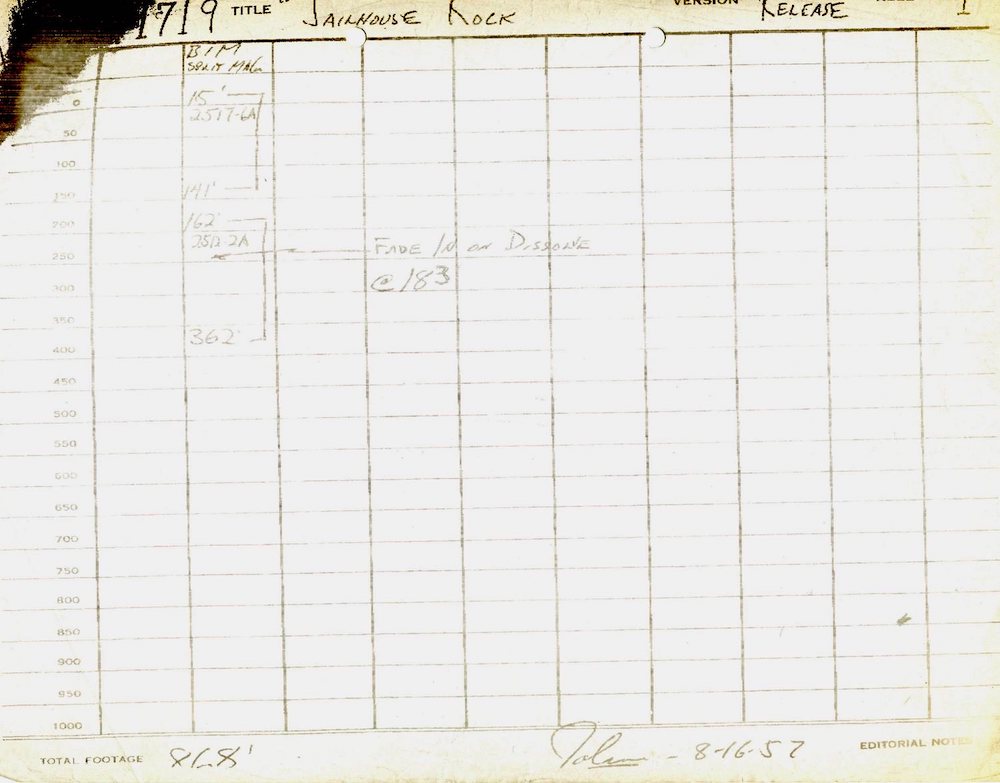 1719 TITLE " JAILHOUSE ROCK VERSION RELEASE 1
SPLIT MAG
0
15'
2517-6A
50
100
150
141'
200
162'
2512-2A
FADE IN ON DISSOLVE
250
@ 183
300
350
362'
400
450
500
550
600
650
700
750
800
850
900
950
1000
TOTAL FOOTAGE 868' - 8-16-57 EDITORIAL NOTE